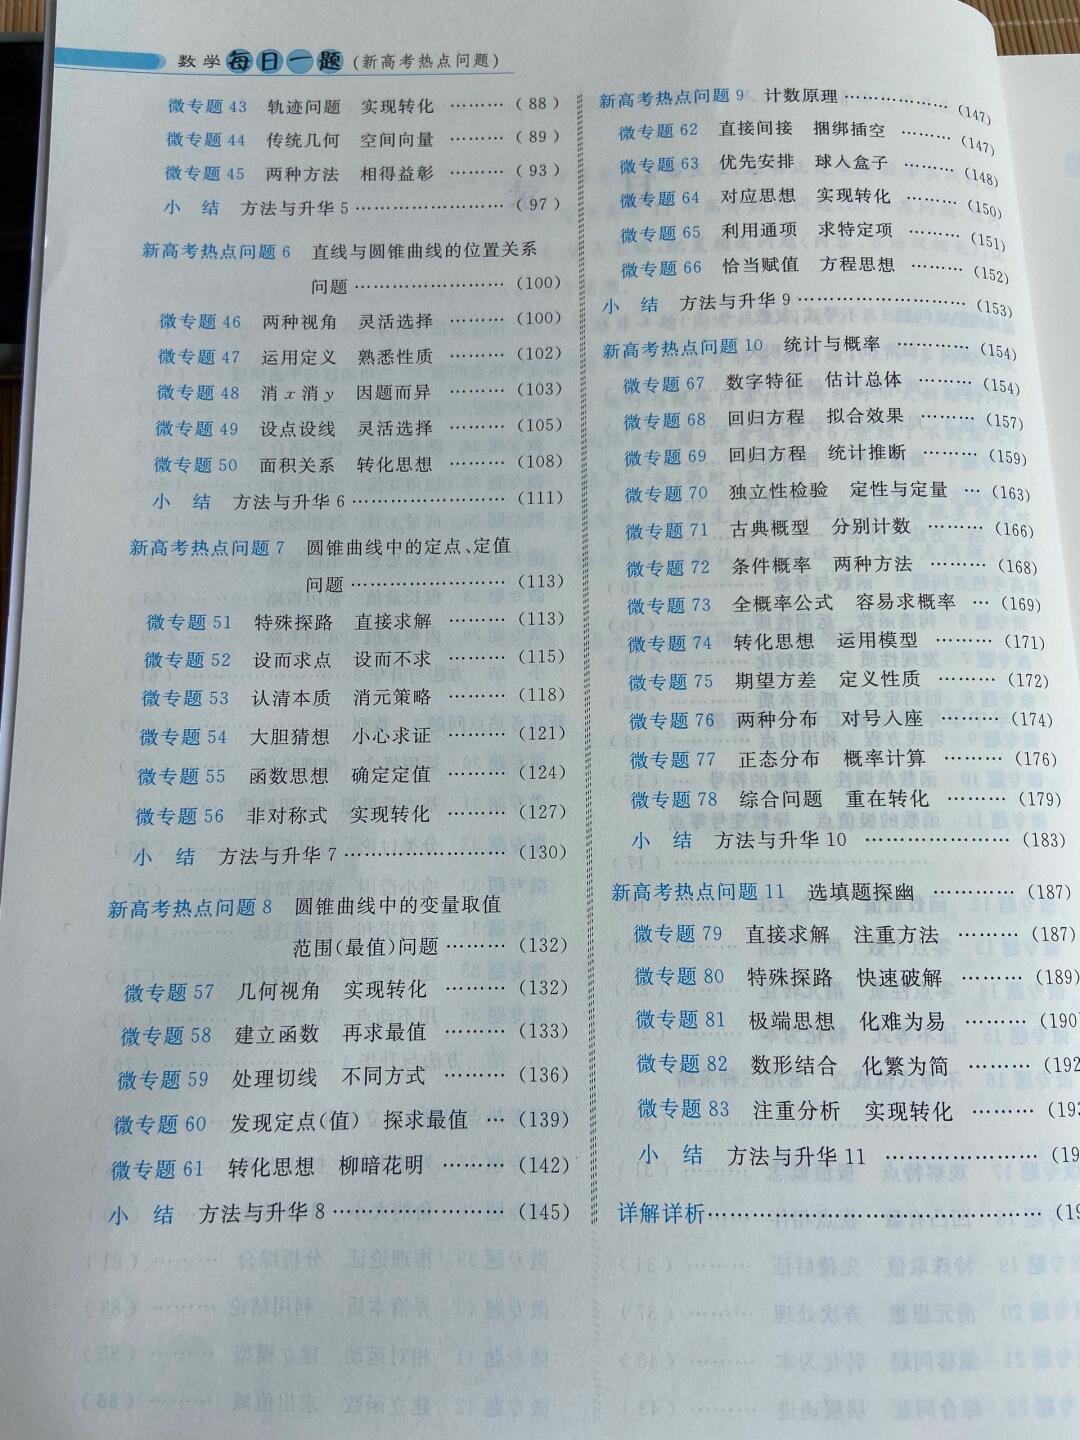 数学每日一题(新高考热点问题)
微专题 43 轨迹问题 实现转化 ………(88)
微专题 44 传统几何 空间向量 ………(89)
微专题 45 两种方法 相得益彰 ………(93)
小 结 方法与升华 5 ……………………(97)
新高考热点问题 6 直线与圆锥曲线的位置关系
问题 ……………………(100)
微专题 46 两种视角 灵活选择 ………(100)
微专题 47 运用定义 熟悉性质 ………(102)
微专题 48 消 x 消 y 因题而异 ………(103)
微专题 49 设点设线 灵活选择 ………(105)
微专题 50 面积关系 转化思想 ………(108)
小 结 方法与升华 6 ……………………(111)
新高考热点问题 7 圆锥曲线中的定点、定值
问题 ……………………(113)
微专题 51 特殊探路 直接求解 ………(113)
微专题 52 设而求点 设而不求 ………(115)
微专题 53 认清本质 消元策略 ………(118)
微专题 54 大胆猜想 小心求证 ………(121)
微专题 55 函数思想 确定定值 ………(124)
微专题 56 非对称式 实现转化 ………(127)
小 结 方法与升华 7 ……………………(130)
新高考热点问题 8 圆锥曲线中的变量取值
范围(最值)问题 ………(132)
微专题 57 几何视角 实现转化 ………(132)
微专题 58 建立函数 再求最值 ………(133)
微专题 59 处理切线 不同方式 ………(136)
微专题 60 发现定点(值) 探求最值 …(139)
微专题 61 转化思想 柳暗花明 ………(142)
小 结 方法与升华 8 ……………………(145)
新高考热点问题 9 计数原理 ……………(147)
微专题 62 直接间接 捆绑插空 ………(147)
微专题 63 优先安排 球入盒子 ………(148)
微专题 64 对应思想 实现转化 ………(150)
微专题 65 利用通项 求特定项 ………(151)
微专题 66 恰当赋值 方程思想 ………(152)
小 结 方法与升华 9 ……………………(153)
新高考热点问题 10 统计与概率 …………(154)
微专题 67 数字特征 估计总体 ………(154)
微专题 68 回归方程 拟合效果 ………(157)
微专题 69 回归方程 统计推断 ………(159)
微专题 70 独立性检验 定性与定量 …(163)
微专题 71 古典概型 分别计数 ………(166)
微专题 72 条件概率 两种方法 ………(168)
微专题 73 全概率公式 容易求概率 …(169)
微专题 74 转化思想 运用模型 ………(171)
微专题 75 期望方差 定义性质 ………(172)
微专题 76 两种分布 对号入座 ………(174)
微专题 77 正态分布 概率计算 ………(176)
微专题 78 综合问题 重在转化 ………(179)
小 结 方法与升华 10 …………………(183)
新高考热点问题 11 选填题探幽 …………(187)
微专题 79 直接求解 注重方法 ………(187)
微专题 80 特殊探路 快速破解 ………(189)
微专题 81 极端思想 化难为易 ………(190)
微专题 82 数形结合 化繁为简 ………(192
微专题 83 注重分析 实现转化 ………(19
小 结 方法与升华 11 …………………(19
详解详析……………………………………(19